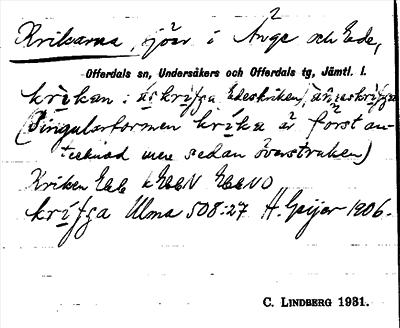 Krikarna, sjöar i Ånge och Ede,
Offerdals sn, Undersåkers och Offerdals tg, Jämtl. l.
krikan: Edeskriken,
(Singularformen krika är först an-
tecknad men sedan överstruken)
Kriken
Ulma 508:27 H. Geijer 1906.
C. LINDBERG 1931.